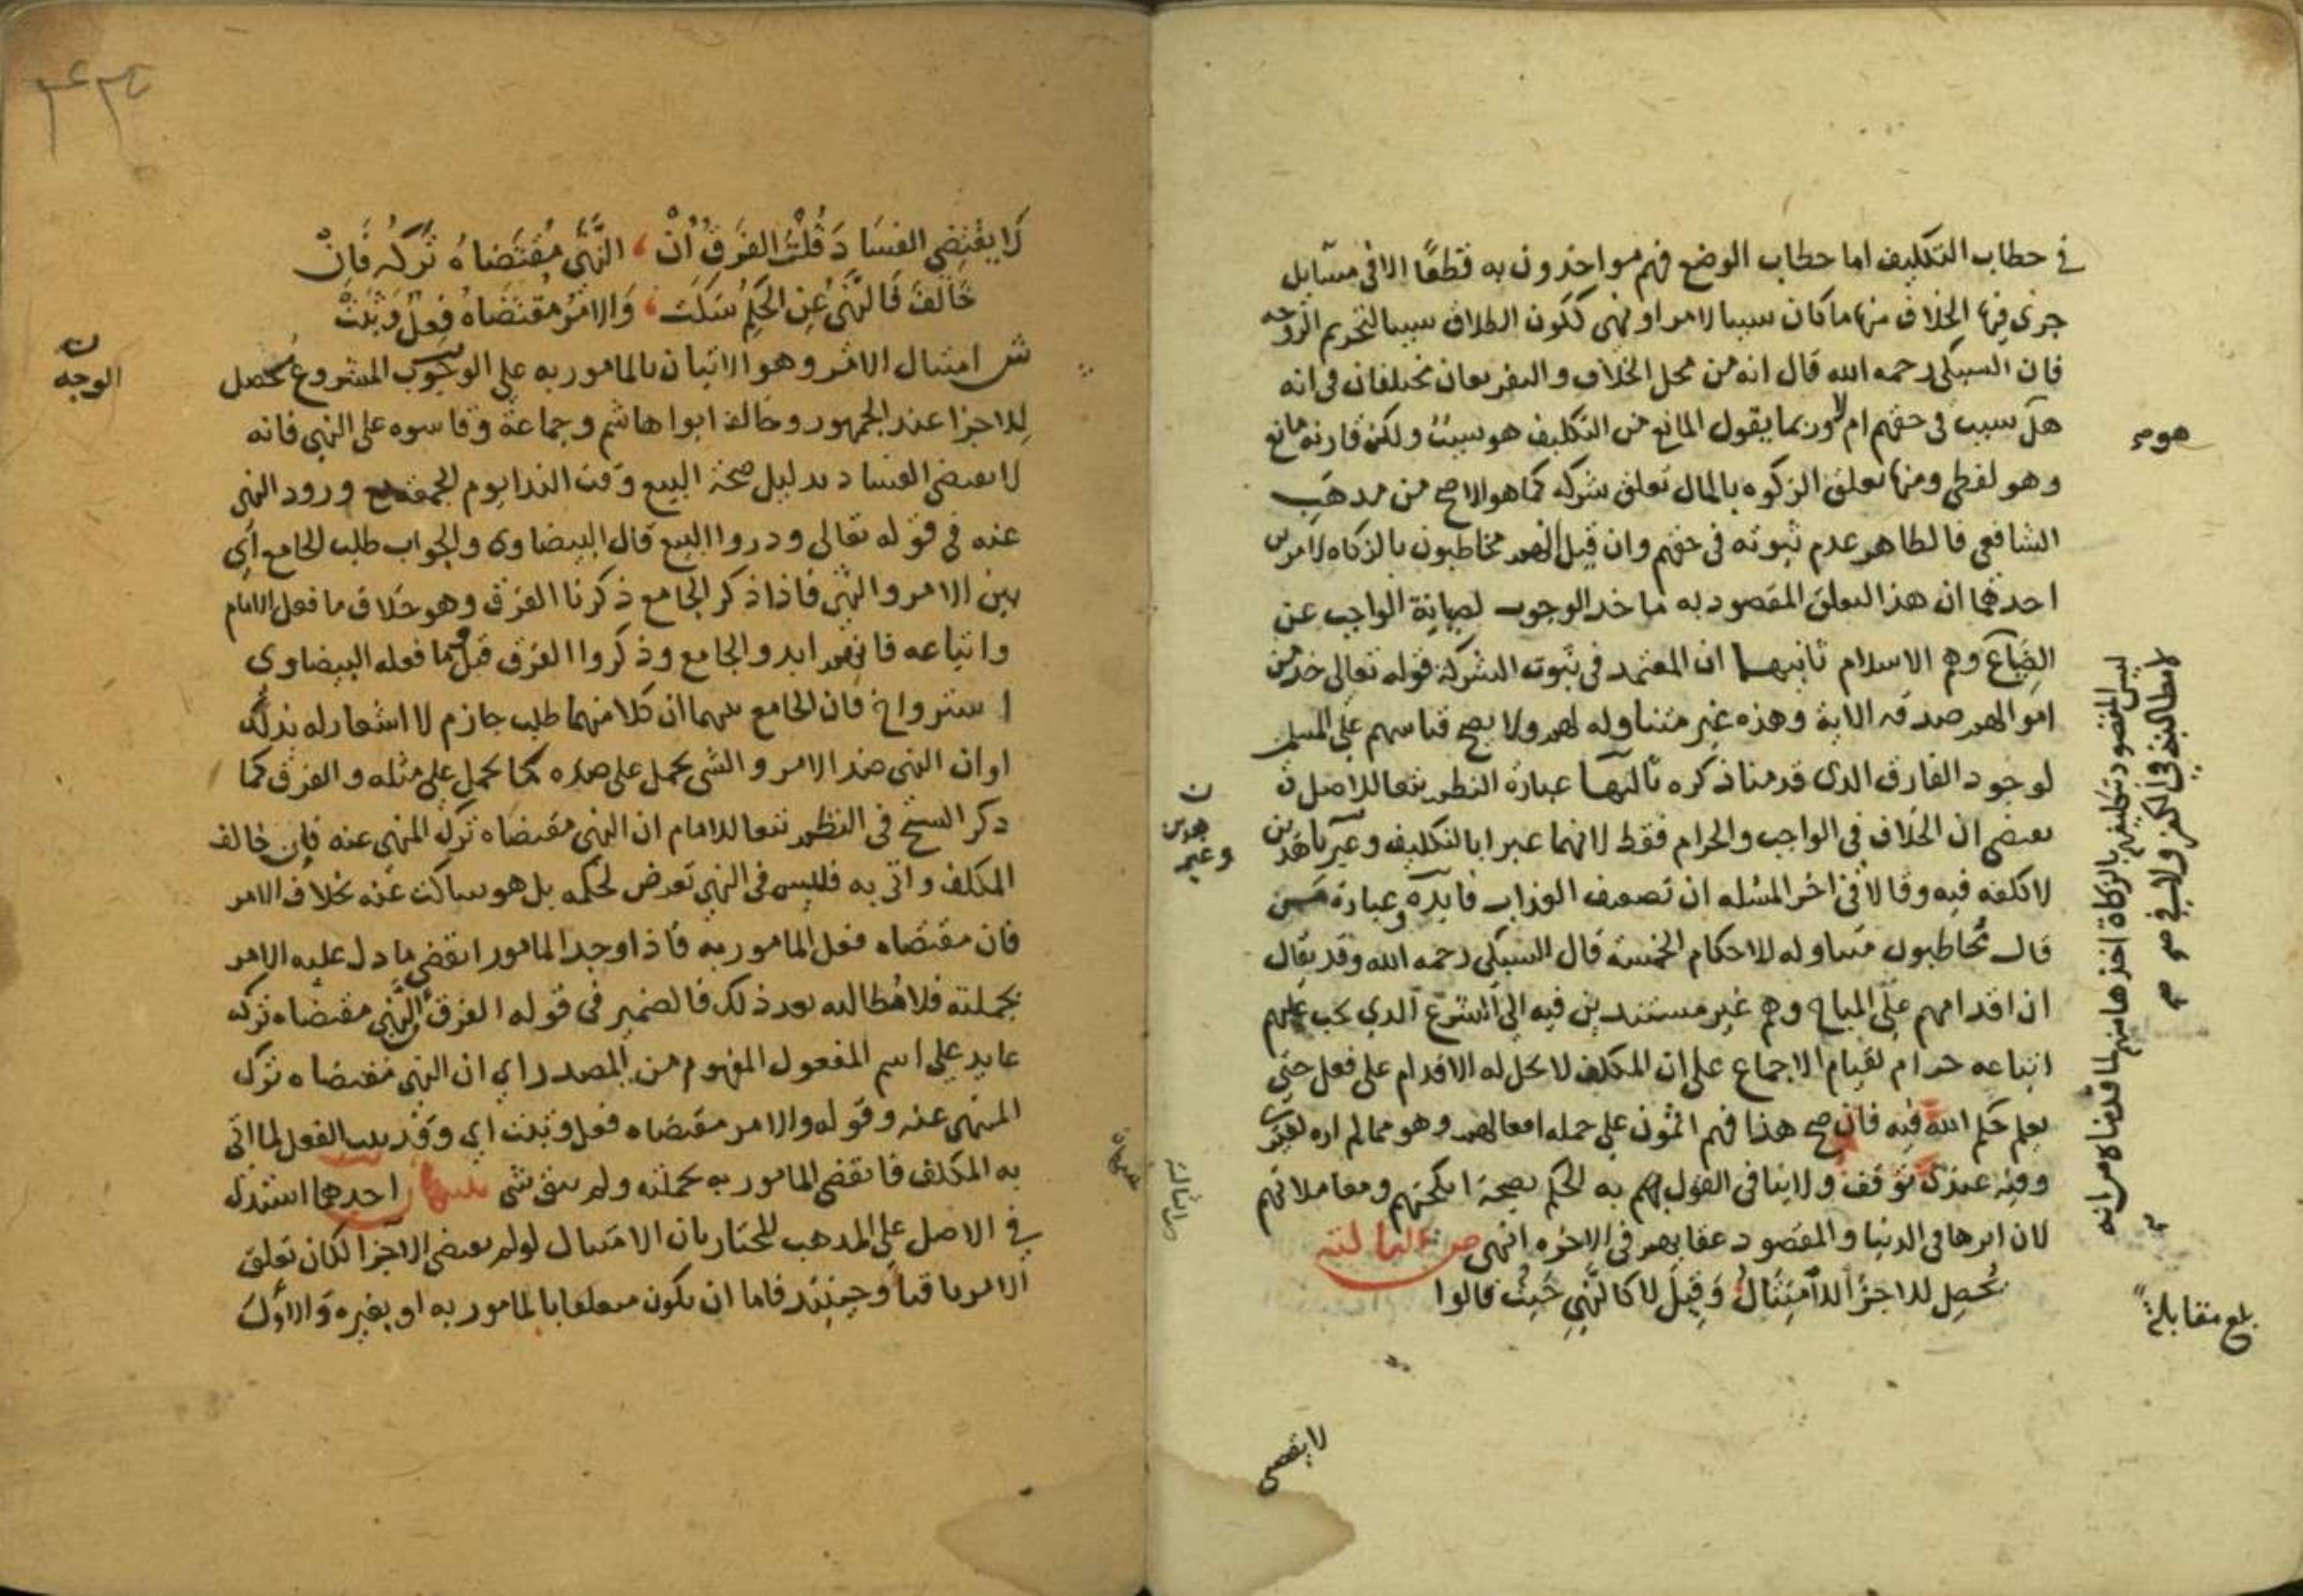 في خطاب التكليف اما خطاب الوضع فهم مواخذون به قطعًا الا في مسآيل
جرى فيها الخلاف منها ما كان سببا لامر او نهي ككون الطلاق سببا لتحريم الزوجه
فان السبكي رحمه الله قال انه من محل الخلاف والفريقان مختلفان في انه
هل سبب في حقهم ام لا وربما يقول المانع من التكليف هو سبب ولكن قارنه مانع
وهو لفظي ومنها تعلق الزكوه بالمال تعلق شركه كما هو الاصح من مذهب
الشافعي فالظاهر عدم ثبوته في حقهم وان قيل انهم مخاطبون بالزكاه لامرين
احدهما ان هذا التعلق المقصود به تاخد الوجوب لصيانة الواجب عن
الضياع وهم الاسلام ثانيهما ان المعتمد في ثبوت الشركة قوله تعالى خذ من
اموالهم صدقه الاية وهذه غير متناوله لهم ولا يصح قياسهم على المسلم
لوجود الفارق الذي قدمنا ذكره ثالثها عبارة النظم تبعا للاصل
تقتضي ان الخلاف في الواجب والحرام فقط لانهما عبرا بالتكليف وغير هذين
لا تكلفه فيه وقالا في اخر المسله ان تضعيف العذاب فايدة وعبارة من
قال مخاطبون متناوله للاحكام الخمسة قال السبكي رحمه الله وقد يقال
ان اقدامهم على المباح وهم غير مستندين فيه الى الشرع الذي يجب عليهم
اتباعه حرام لقيام الاجماع على ان المكلف لا يحل له الاقدام على فعل حتى
يعلم حكم الله فيه فان صح هذا فهم اثمون على جمله افعالهم وهو مما لم اره لغيري
وفيه عندي توقف ولا ينافي القول بهم به الحكم بصحة انكحتهم ومعاملاتهم
لان اثرها في الدنيا والمقصود عقابهم في الاخره انتهى ص الثالثه
يُحصل للاجزآ الامتثال وقيل لا كالنهي حيث قالوا
لا يقتضي
هو
وغير هذين
ليس المقصود تكليفهم بالزكاة اخذها منهم لما قدمناه من انه
لا مطالبة في الكفر ولا
بلغ مقابلة
لا يقتضي الفسا د قلت الفرق أن ، النهي مقتضاه تركه فإن
خالف فالنهي عن الحكم سكت ، والامر مقتضاه فعل وثبت
ش امتثال الامر وهو الاتيان بالمامور به على الوجوب المشروع محصل
للاجزا عند الجمهور وخالف ابوا هاشم وجماعة وقاسوه على النهي فانه
لا يقتضي الفساد بدليل صحة البيع وقت الندا يوم الجمعة مع ورود النهي
عنه في قوله تعالى وذروا البيع قال البيضاوي والجواب طلب الجامع أي
بين الامر والنهي فاذا ذكر الجامع ذكرنا الفرق وهو خلاف ما فعل الامام
واتباعه فانهم ابدوا الجامع وذكروا الفرق قبل وما فعله البيضاوي
استرواح فان الجامع بينهما ان كلا منهما طلب جازم لا اشعار له بذلك
او ان النهي ضد الامر والشي يحمل على ضده كما يحمل على مثله والفرق كما
ذكر الشيخ في النظم تبعا للامام ان النهي مقتضاه ترك المنهي عنه فإن خالف
المكلف واتى به فليس في النهي تعرض لحكمه بل هو ساكت عنه بخلاف الامر
فان مقتضاه فعل المامور به فاذا وجد المامور انقضى ما دل عليه الامر
بجملته فلا مطالبه بعد ذلك فالضمير في قوله الفرق أن النهي مقتضاه تركه
عايد على اسم المفعول المفهوم من المصدر اي ان النهي مقتضاه ترك
المنهي عنه وقوله والامر مقتضاه فعل وثبت اي وقد ثبت الفعل لما اتى
به المكلف فانقضى المامور به بجملته ولم يبق شي تنبيهان احدهما استدل
في الاصل على المذهب المختار بان الامتثال لو لم يقتض الآجزا لكان تعلق
الامر باقيا وحينئذ فاما ان يكون متعلقا بالمامور به او بغيره والاول
الوجه
تنبيهان
الثالثة